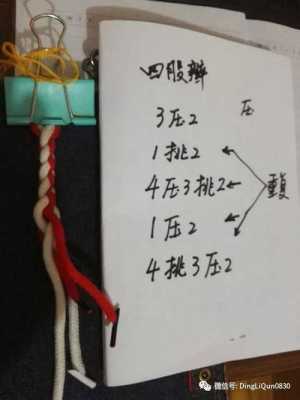 四股辫
3压2 压
1挑2
4压3挑2
重复
1压2
4挑3压2
微信号: DingLiQun0830